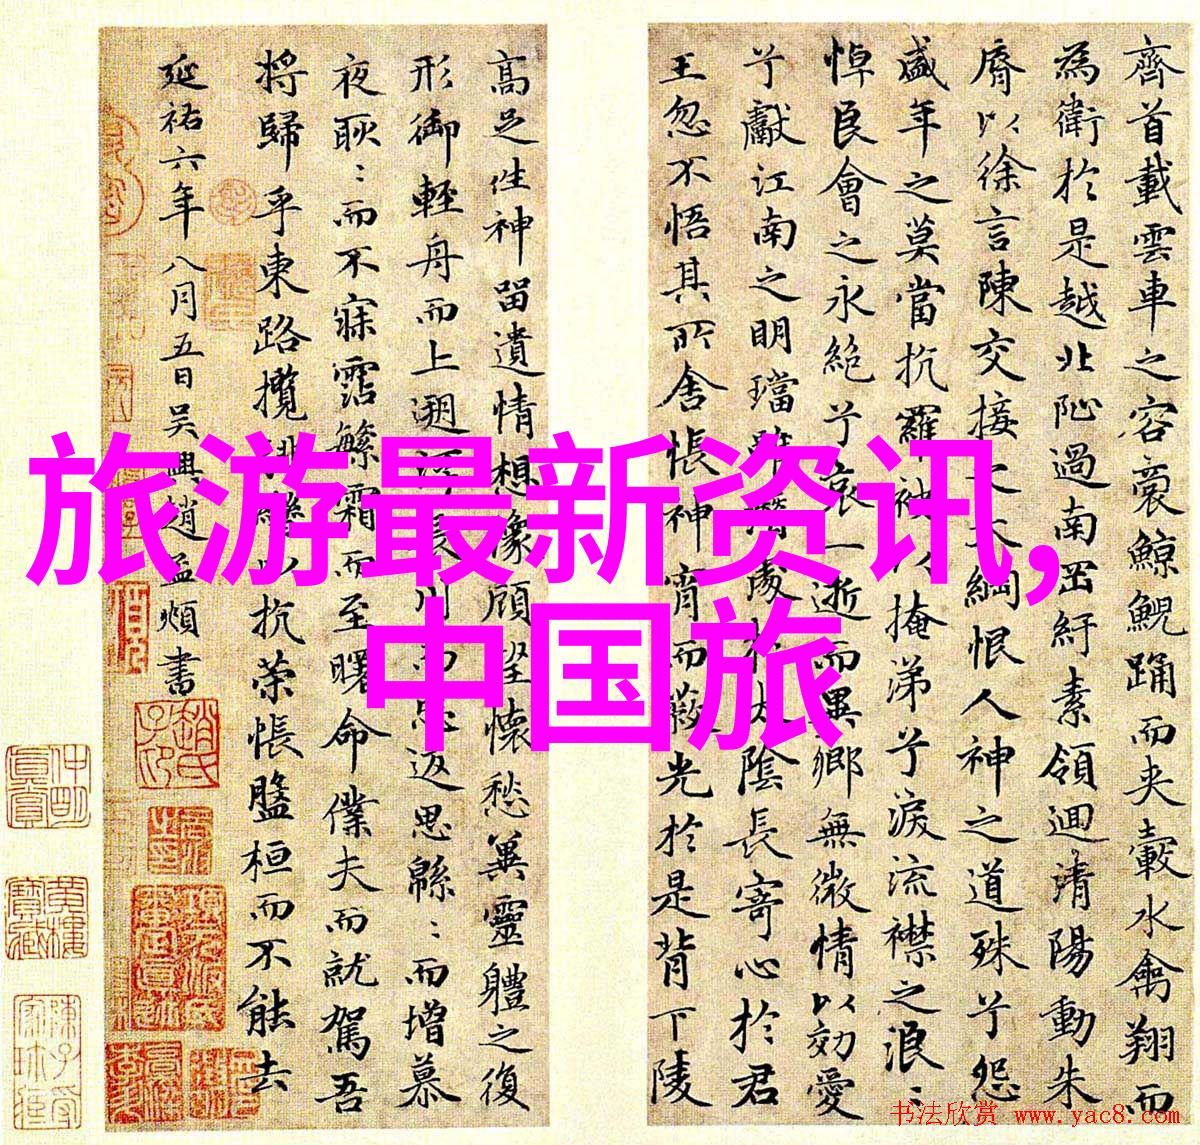 齊首載雲車之容裔鯨鯢踊而夾轂水禽翔而
為衛於是越北沚過南岡紆素領迴清陽動朱
脣以徐言陳交接之大綱恨人神之道殊兮怨
盛年之莫當抗羅袂以掩涕兮淚流襟之浪〻
悼良會之永絕兮哀一逝而異鄉無微情以効愛
兮獻江南之明璫雖潛處於太陰長寄心於君
王忽不悟其所舍悵神宵而蔽光於是背下陵
高足往神留遺情想像顧望懷愁冀靈體之復
形御輕舟而上遡浮長川而忘返思緜〻而增慕
夜耿〻而不寐霑繁霜而至曙命僕夫而就駕吾
將歸乎東路攬騑轡以抗策悵盤桓而不能去
延祐六年八月五日吳興趙孟頫書
旅游最新资讯,
中国旅
书法欣赏 www.yac8.com